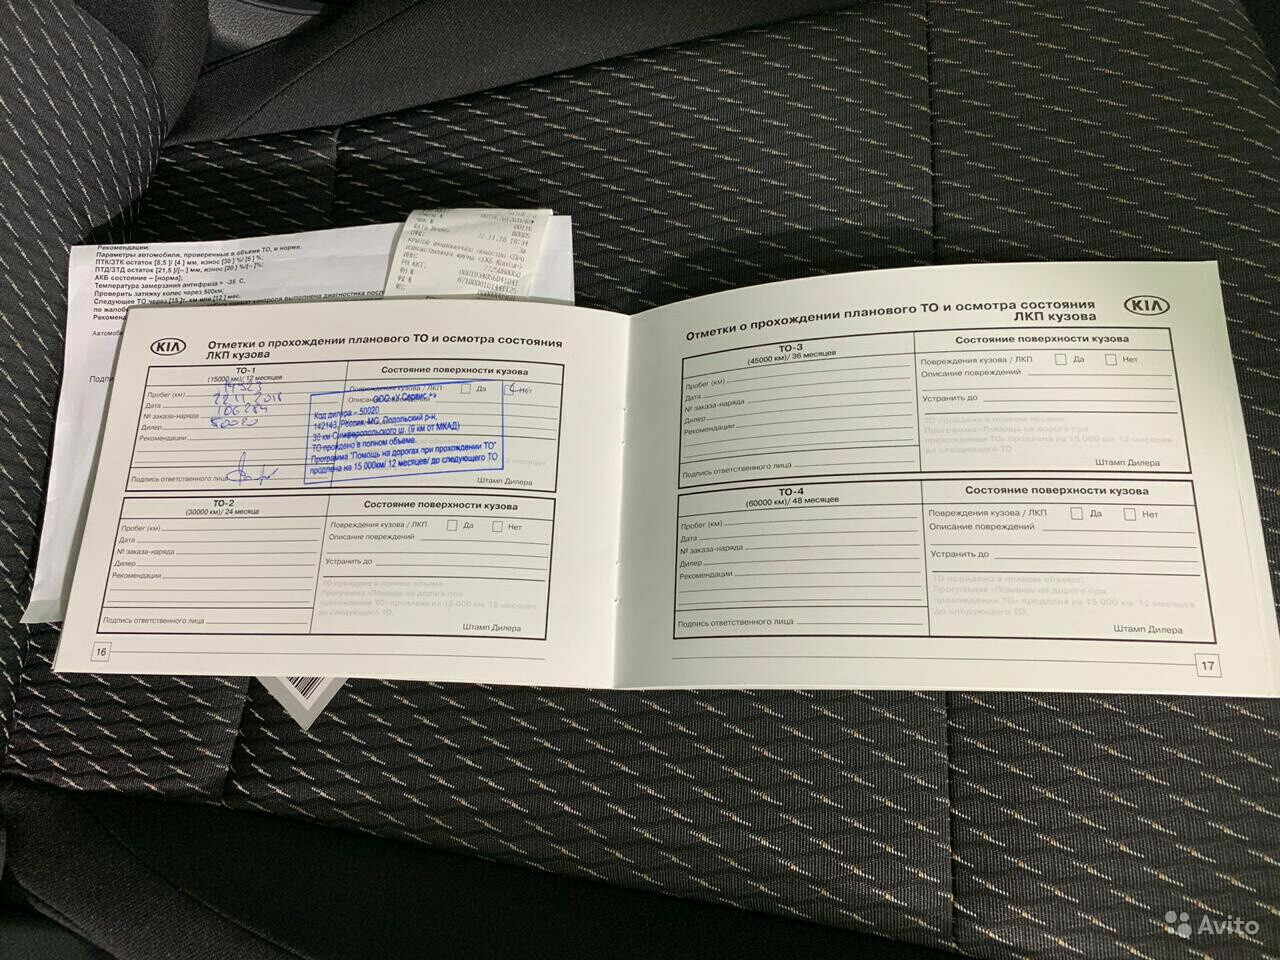 Рекомендации:
Параметры автомобиля, проверенные в объеме ТО, в норме.
ПТК/ЗТК остаток [8,5 ]/ [4 ] мм, износ [30 ] %/ [5 ] %;
ПТД/ЗТД остаток [21,5 ]/[– ] мм, износ [20 ] %/[–]%;
АКБ состояние – [норма];
Температура замерзания антифриза = -35 С,
Проверить затяжку колес через 500км;
Следующее ТО через [15 ]т. км или [12 ] мес.
контроля выполнена диагностика
по жалобе
Рекоменд
Автомоб
Подпи
Смена №
Чек №
00116
00005
22.11.18 18:34
ИНН: 7725080060
РН ККТ: 0001183405641041
ФН № 8710000101441125
ФД №
ФП:
KIA
Отметки о прохождении планового ТО и осмотра состояния
ЛКП кузова
ТО-1
(15000 км)/ 12 месяцев
Состояние поверхности кузова
Пробег (км) 14323
Дата 22.11.2018
№ заказа-наряда 106284
Дилер 50020
Рекомендации
Подпись ответственного лица
Повреждения кузова / ЛКП Да Нет
Описание повреждений
ООО «У Сервис +»
Код дилера – 50020
142143, Россия, МО, Подольский р-н,
30 км Симферопольского ш. (9 км от МКАД)
ТО пройдено в полном объеме.
Программа "Помощь на дорогах при прохождении ТО"
продлена на 15 000км/ 12 месяцев/ до следующего ТО
Штамп Дилера
ТО-2
(30000 км)/ 24 месяца
Состояние поверхности кузова
Пробег (км)
Дата
№ заказа-наряда
Дилер
Рекомендации
Подпись ответственного лица
Повреждения кузова / ЛКП Да Нет
Описание повреждений
Устранить до
ТО пройдено в полном объеме.
Программа «Помощь на дороге при
прохождении ТО» продлена на 15 000 км/12 месяцев
до следующего ТО.
Штамп Дилера
16
Отметки о прохождении планового ТО и осмотра состояния
ЛКП кузова
KIA
ТО-3
(45000 км)/ 36 месяцев
Состояние поверхности кузова
Пробег (км)
Дата
№ заказа-наряда
Дилер
Рекомендации
Подпись ответственного лица
Повреждения кузова / ЛКП Да Нет
Описание повреждений
Устранить до
ТО пройдено в полном объеме.
Программа «Помощь на дороге при
прохождении ТО» продлена на 15 000 км/12 месяцев
до следующего ТО.
Штамп Дилера
ТО-4
(60000 км)/ 48 месяцев
Состояние поверхности кузова
Пробег (км)
Дата
№ заказа-наряда
Дилер
Рекомендации
Подпись ответственного лица
Повреждения кузова / ЛКП Да Нет
Описание повреждений
Устранить до
ТО пройдено в полном объеме.
Программа «Помощь на дороге при
прохождении ТО» продлена на 15 000 км/12 месяцев
до следующего ТО.
Штамп Дилера
17
Avito